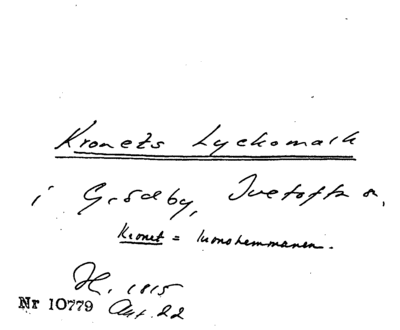 Kronets Lyckomark
i Grödby, Ivetofta s,
Kronet = kronohemmanen.
H. 1815
Nr 10779 Akt. 22